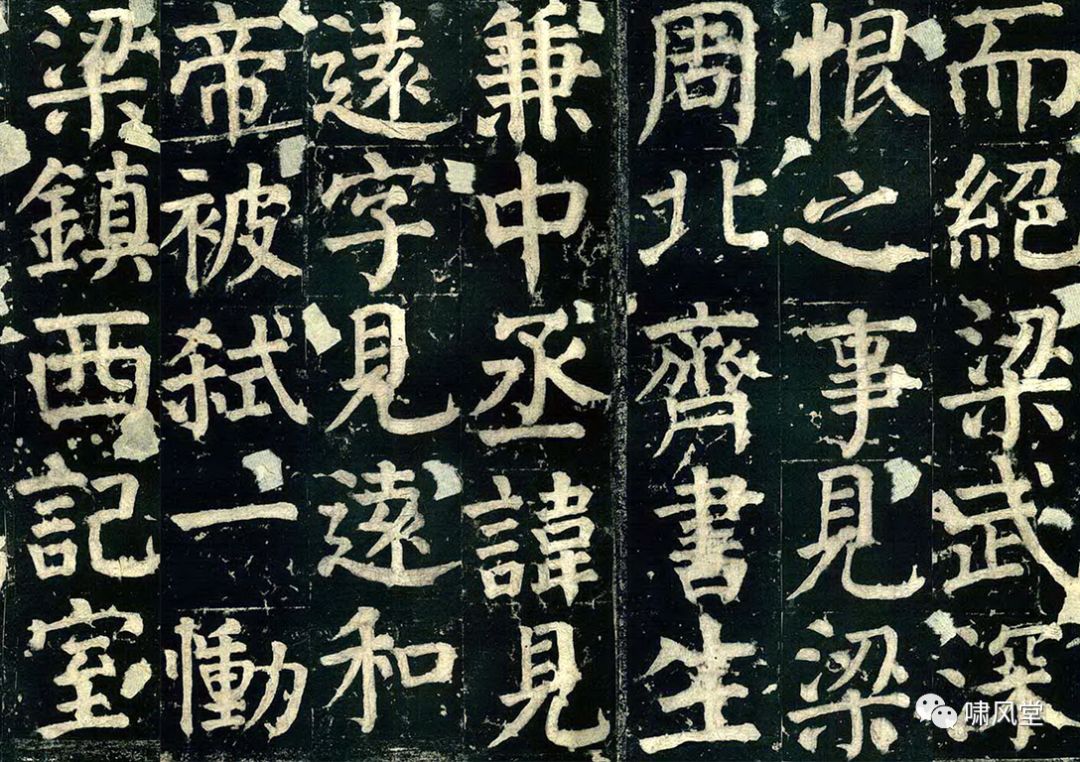 而絕梁武深
恨之事見梁
周北齊書生
兼中丞諱見
遠字見遠和
帝被弑一慟
梁鎮西記室
啸风堂